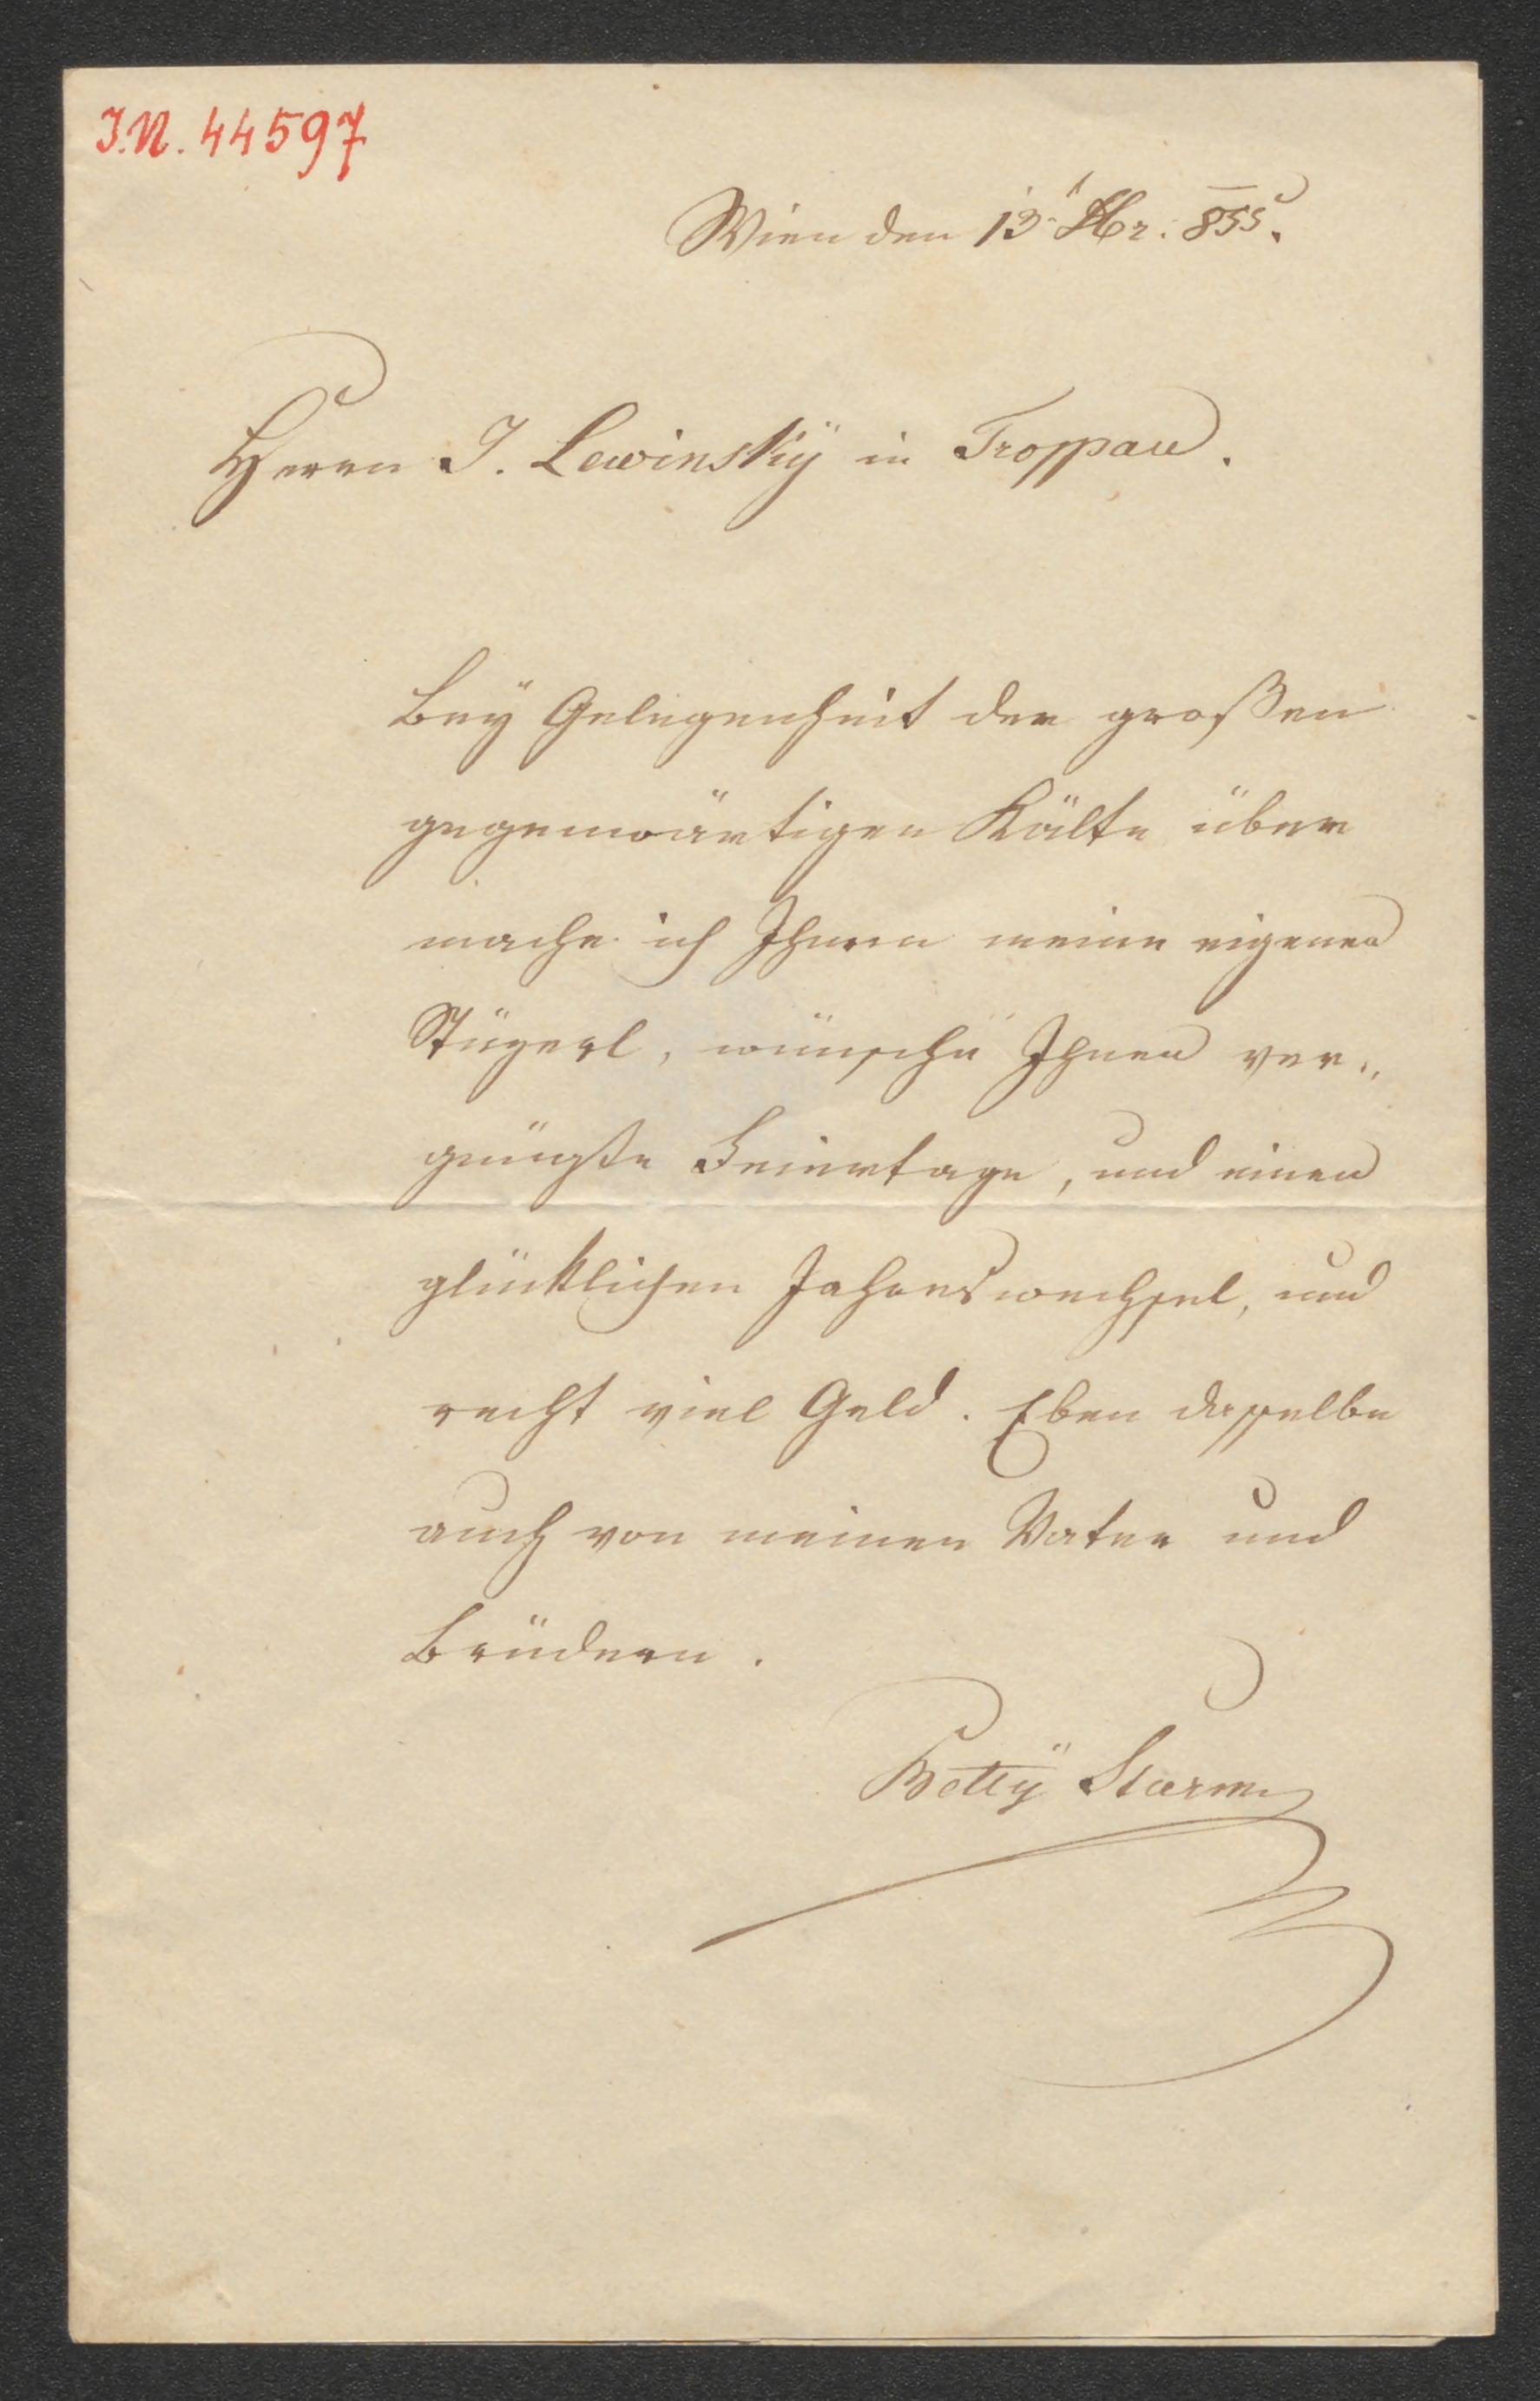 I.N. 44597
Wien den 13 Xbr. 855.
Herrn J. Lewinskÿ in Troppau.
Beÿ Gelegenheit der großen
gegenwärtigen Kälte über
mache ich Ihnen meine eigenen
wünsche Ihnen ver„
gnügte Feiertage, und einen
glücklichen Jahreswechsel, und
recht viel Geld. Eben dasselbe
auch von meinen Vater und
Brüdern.
Bettÿ Sturm